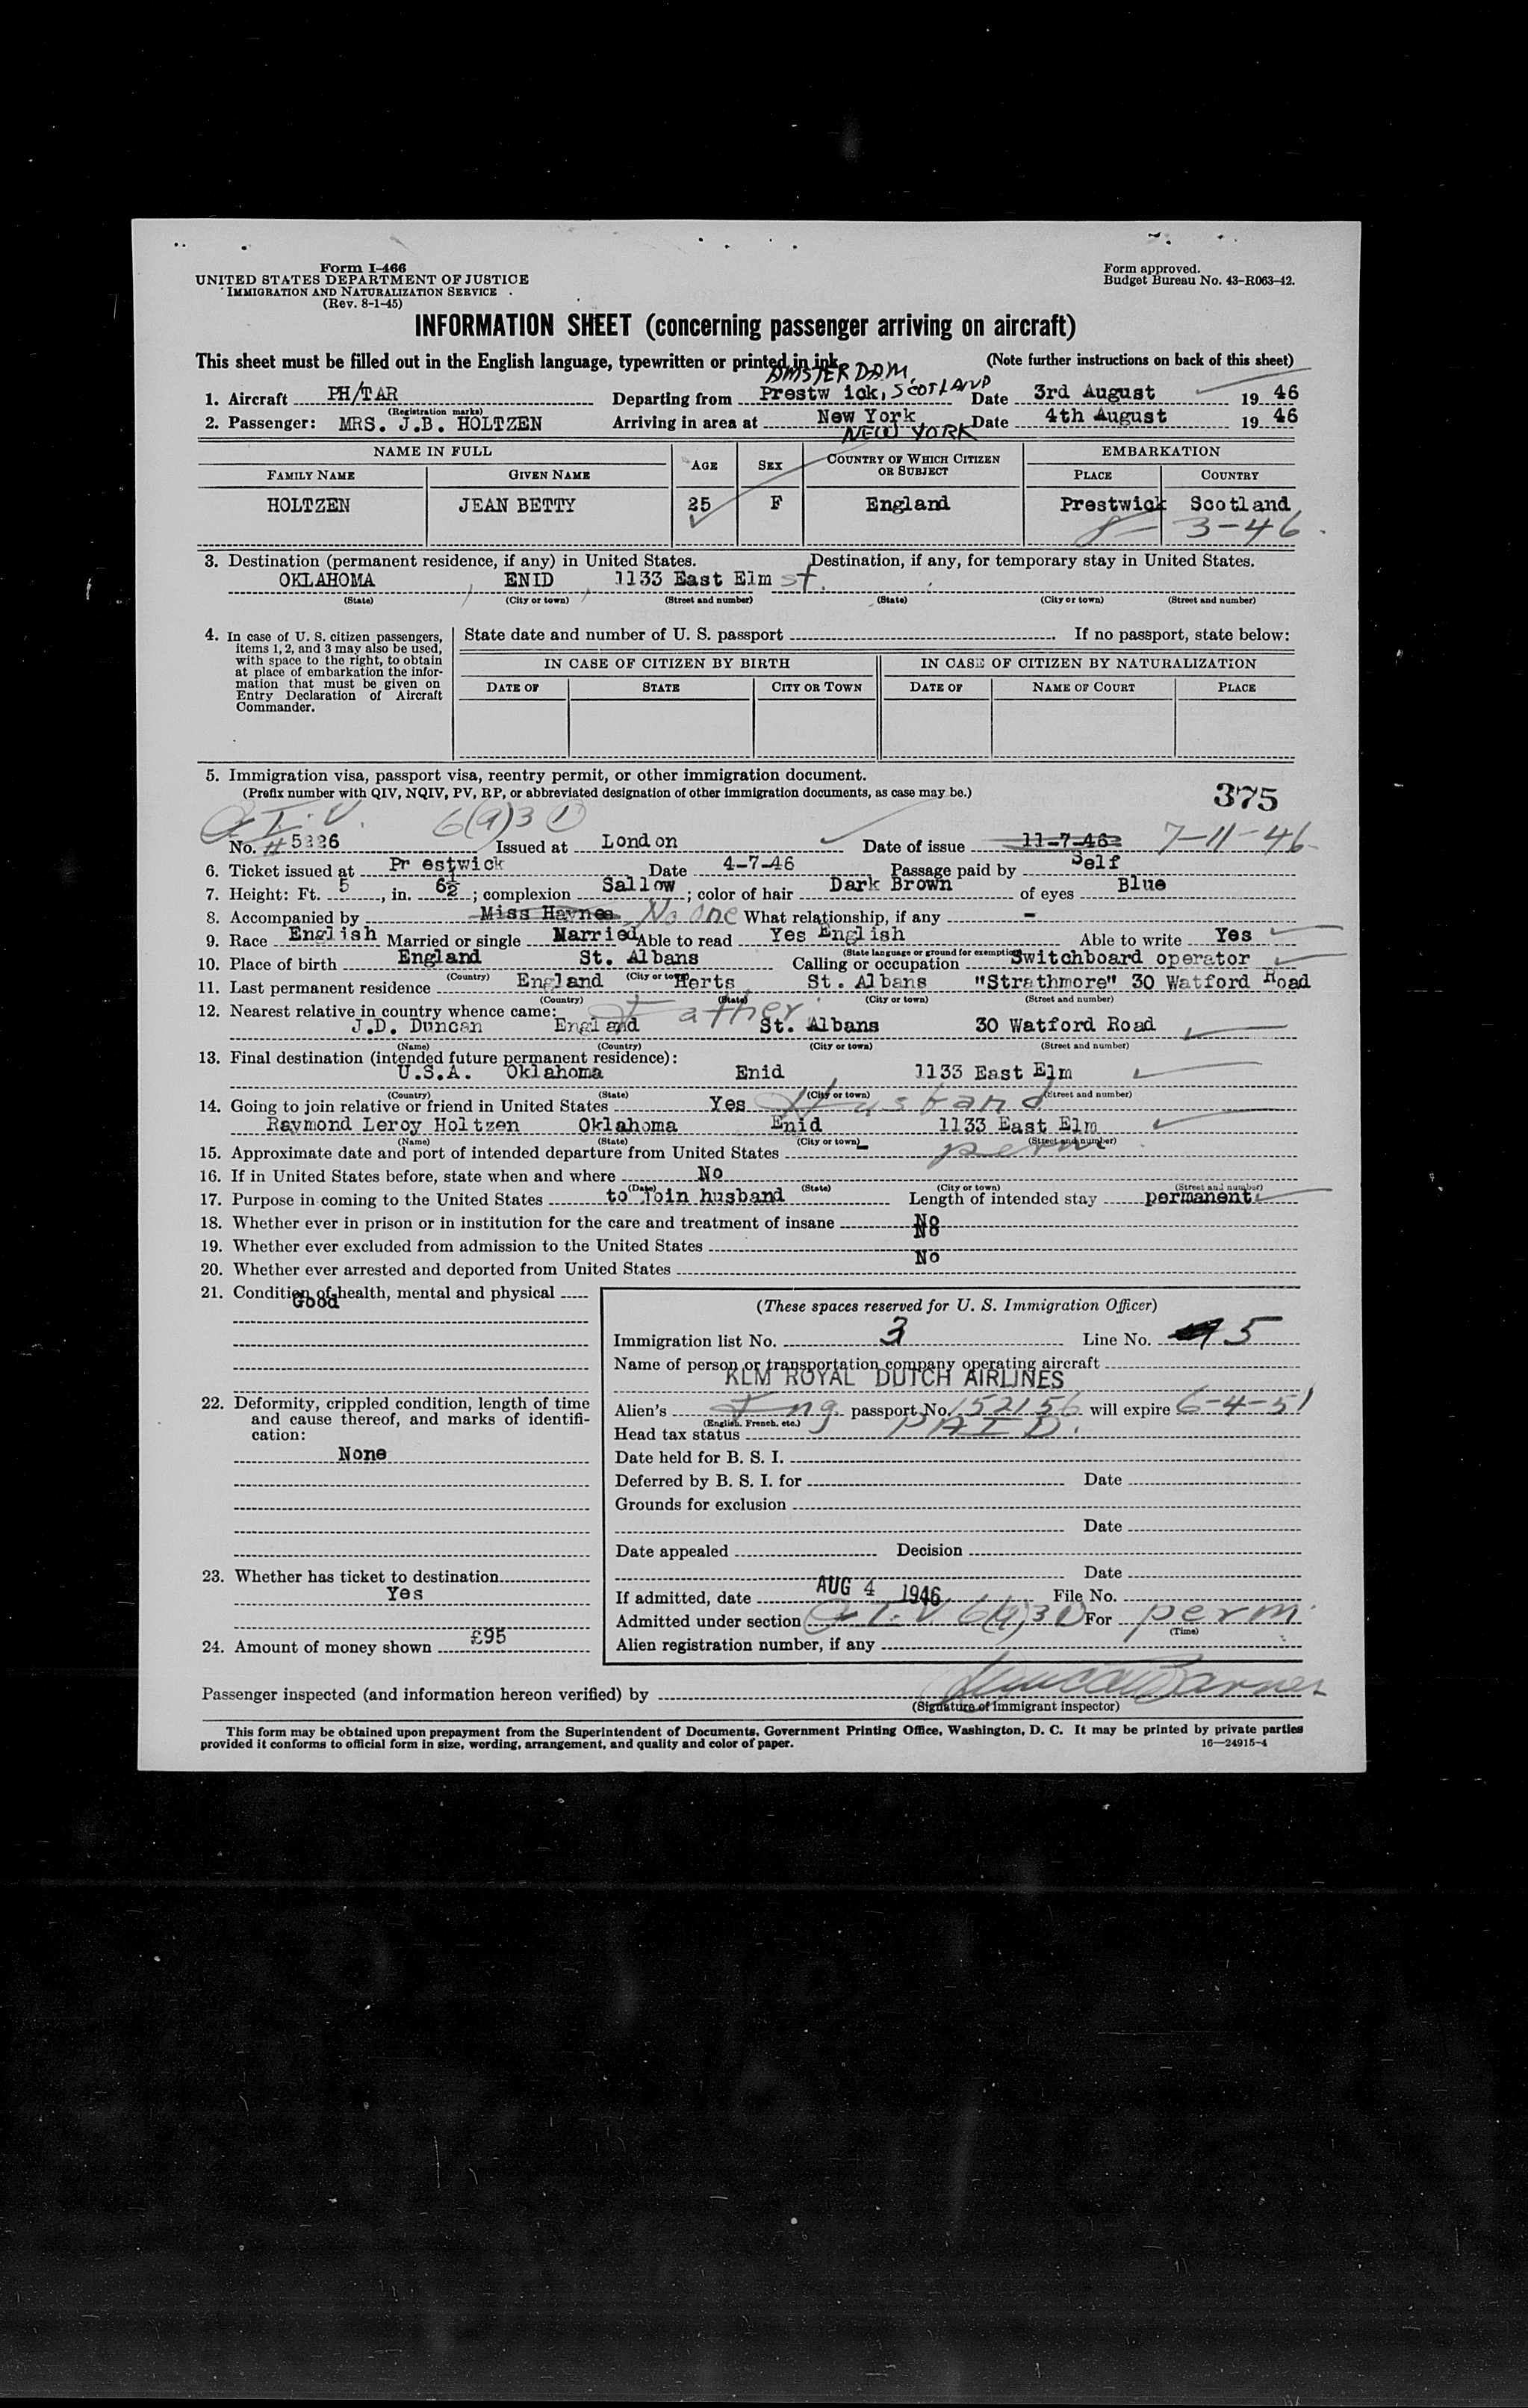 Form I-466
UNITED STATES DEPARTMENT OF JUSTICE
IMMIGRATION AND NATURALIZATION SERVICE
(Rev. 8-1-45)
Form approved.
Budget Bureau No. 43-R063-42.
INFORMATION SHEET (concerning passenger arriving on aircraft)
This sheet must be filled out in the English language, typewritten or printed in ink.
(Note further instructions on back of this sheet)
AMSTERDAM.
1. Aircraft PH/TAR Departing from Prestw ick, SCOTLAND Date 3rd August 19 46
(Registration marks)
2. Passenger: MRS. J.B. HOLTZEN Arriving in area at New York Date 4th August 19 46
NEW YORK
NAME IN FULL AGE SEX COUNTRY OF WHICH CITIZEN OR SUBJECT EMBARKATION
FAMILY NAME GIVEN NAME PLACE COUNTRY
HOLTZEN JEAN BETTY 25 F England Prestwick Scotland
8-3-46
3. Destination (permanent residence, if any) in United States. Destination, if any, for temporary stay in United States.
OKLAHOMA ENID 1133 East Elm st.
(State) (City or town) (Street and number) (State) (City or town) (Street and number)
4. In case of U. S. citizen passengers,
items 1, 2, and 3 may also be used,
with space to the right, to obtain
at place of embarkation the infor-
mation that must be given on
Entry Declaration of Aircraft
Commander.
State date and number of U. S. passport If no passport, state below:
IN CASE OF CITIZEN BY BIRTH IN CASE OF CITIZEN BY NATURALIZATION
DATE OF STATE CITY OR TOWN DATE OF NAME OF COURT PLACE
5. Immigration visa, passport visa, reentry permit, or other immigration document.
(Prefix number with QIV, NQIV, PV, RP, or abbreviated designation of other immigration documents, as case may be.)
375
Q I. V. 6(9)3 (1)
No. # 5226 Issued at London Date of issue 11-7-46 7-11-46
6. Ticket issued at Pr estwick Date 4-7-46 Passage paid by Self
7. Height: Ft. 5, in. 6½; complexion Sallow; color of hair Dark Brown of eyes Blue
8. Accompanied by Miss Haynes No one What relationship, if any -
9. Race English Married or single Married Able to read Yes English Able to write Yes
(State language or ground for exemption)
10. Place of birth England St. Albans Calling or occupation Switchboard operator
(Country) (City or town)
11. Last permanent residence England Herts St. Albans "Strathmore" 30 Watford Road
(Country) (State) (City or town) (Street and number)
12. Nearest relative in country whence came: Father
J.D. Duncan England St. Albans 30 Watford Road
(Name) (Country) (City or town) (Street and number)
13. Final destination (intended future permanent residence):
U.S.A. Oklahoma Enid 1133 East Elm
(Country) (State) (City or town) (Street and number)
14. Going to join relative or friend in United States Yes Husband
Raymond Leroy Holtzen Oklahoma Enid 1133 East Elm
(Name) (State) (City or town) (Street and number)
15. Approximate date and port of intended departure from United States - perm
16. If in United States before, state when and where No
(Date) (State) (City or town) (Street and number)
17. Purpose in coming to the United States to join husband Length of intended stay permanent.
18. Whether ever in prison or in institution for the care and treatment of insane No
19. Whether ever excluded from admission to the United States No
20. Whether ever arrested and deported from United States No
21. Condition of health, mental and physical
Good
22. Deformity, crippled condition, length of time
and cause thereof, and marks of identifi-
cation:
None
23. Whether has ticket to destination
Yes
24. Amount of money shown £95
(These spaces reserved for U. S. Immigration Officer)
Immigration list No. 3 Line No. 5
Name of person or transportation company operating aircraft
KLM ROYAL DUTCH AIRLINES
Alien's Eng. passport No. 152156 will expire 6-4-51
(English, French, etc.)
Head tax status PAID.
Date held for B. S. I.
Deferred by B. S. I. for Date
Grounds for exclusion
Date
Date appealed Decision
Date
If admitted, date AUG 4 1946 File No.
Admitted under section Q I. V 6(9)3(1) For perm.
(Time)
Alien registration number, if any
Passenger inspected (and information hereon verified) by Barnes
(Signature of immigrant inspector)
This form may be obtained upon prepayment from the Superintendent of Documents, Government Printing Office, Washington, D. C. It may be printed by private parties
provided it conforms to official form in size, wording, arrangement, and quality and color of paper.
16—24915-4